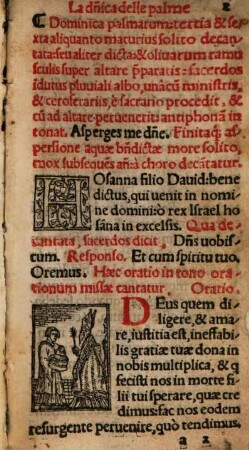 La dñica delle palme 2
Dominica palmarum: tertia & se
xta aliquanto maturius solito decan
tata: seu aliter dicta: & oliuarum ramu
sculis super altare p̃paratis: sacerdos
idutus pluuiali albo, unà cũ ministris,
& ceroferariis, è sacrario procedit, &
cũ ad altare peruenerit: antiphonã in
tonat. Asperges me dñe. Finitaq; as
persione aquæ bñdictæ more solito,
mox subsequẽs añ: à choro decãtatur.
HOsanna filio Dauid: bene
dictus, qui uenit in nomine
domini: ò rex Israel ho
sana in excelsis. Qua de
cantata, sacerdos dicit. Dñs uobis
cum. Responso. Et cum spiritu tuo,
Oremus. Hæc oratio in tono orā
tionum missæ cantatur. Oratio.
DEus quem di
ligere, & ama
re, iustitia est, ineffabi
lis gratiæ tuæ dona in
nobis multiplica, & q
fecisti nos in morte fi
lii tui sperare, quæ cre
dimus: fac nos eodem
resurgente peruenire, quò tendimus.
a 2